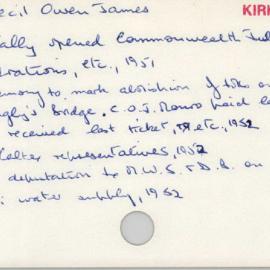 ecil Owen James
KIRK
ally opened Commonwealth Jub
brations, etc., 1951
emony to mark abolition of tolls on
ngly's Bridge. C.O.J. Munro paid la
received last ticket, etc., 1952
representatives, 1952
deputation to M.W.S. & D.B. on
water supply, 1952